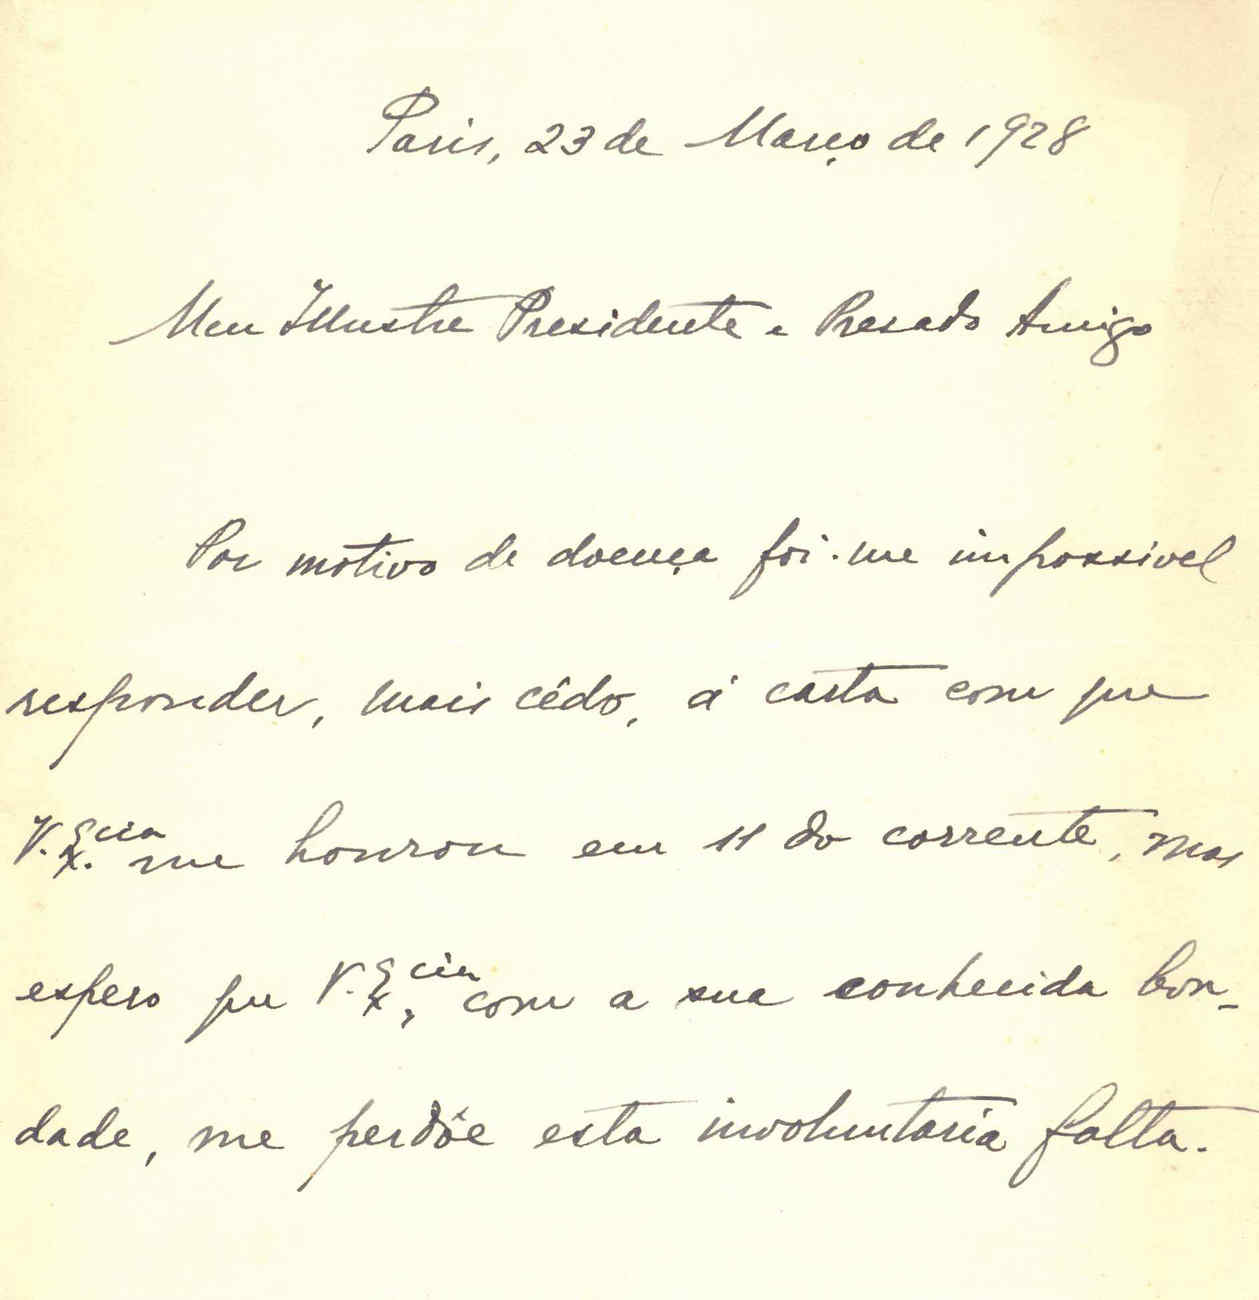 Paris, 23 de Março de 1928
Meu Illustre Presidente e Presado Amigo
Por motivo de doença foi-me impossivel
responder, mais cêdo, á carta com que
V. Ex.cia me honrou em 11 do corrente, mas
espero que V. Ex.cia, com a sua conhecida bon-
dade, me perdôe esta involuntaria falta.